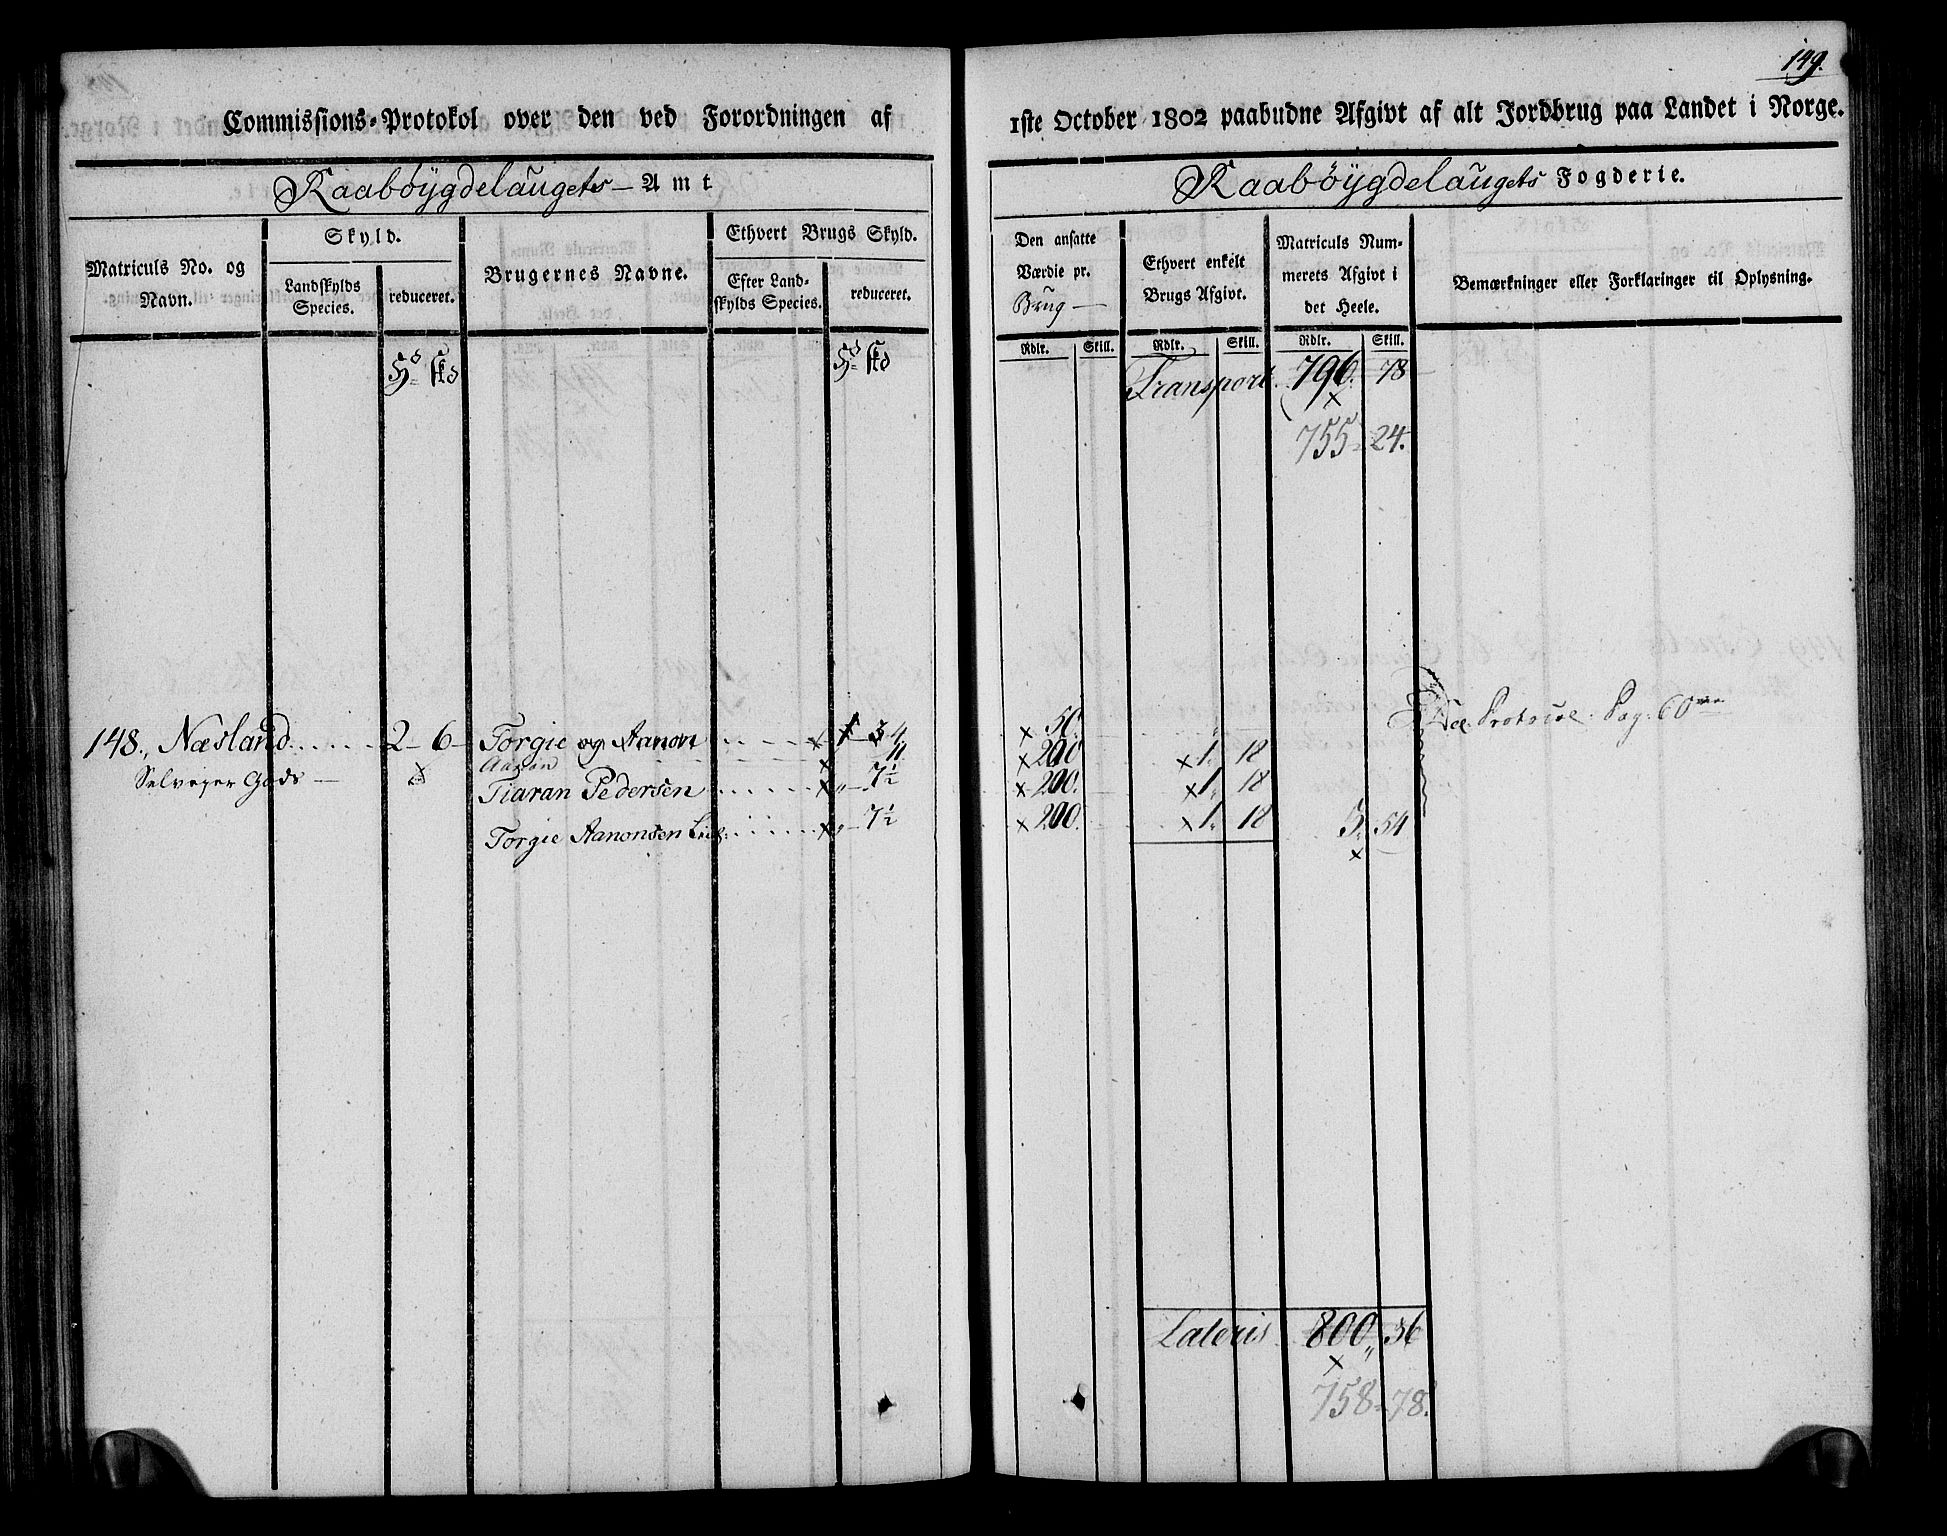 149.
Commissions-Protokol over den ved Forordningen af 1ste October 1802 paabudne Afgivt af alt Jordbrug paa Landet i Norge.
Raabøygdelaugets Amt
Raabøygdelaugets Fogderie.
Matriculs No. og Navn.
Skyld.
Landskylds Species.
reduceret.
Brugernes Navne.
Ethvert Brugs Skyld.
Efter Landskylds Species.
reduceret.
Den ansatte Værdie pr. Brug
Rdlr. Skill.
Ethvert enkelt Brugs Afgivt.
Rdlr. Skill.
Matriculs Nummerets Afgivt i det Heele.
Rdlr. Skill.
Bemærkninger eller Forklaringer til Oplysning.
Transport. 796. 78
755 24.
148., Næsland 2 - 6 - Torgie og Aanon
50. See Protocol Pag: 60
Aanon 11 200 1. 18
Selveyer Gods
Tiaran Pedersen 7½ 200. 1. 18
Torgie Aanonsen 7½ 200. 1. 18 3. 54
Lateris 800 " 36
758 - 78.